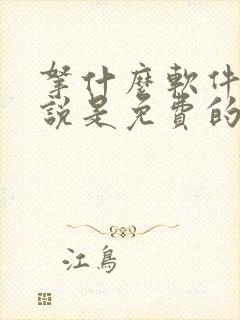 拏什麼軟件
說是免費的
江鳥